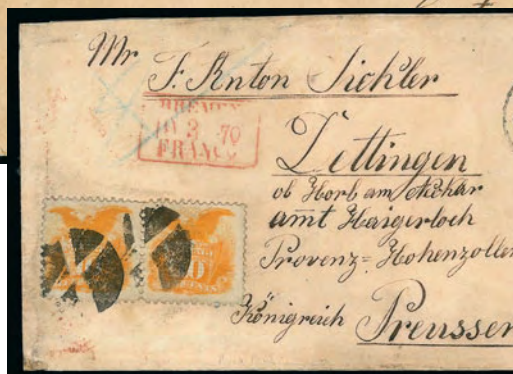 Mr
F. Anton Sichler
BREMEN
2 70
FRANCO
Dettingen
ob Horb am Nekar
amt Haigerloch
Provenz= Hohenzoller
Königreich Preussen